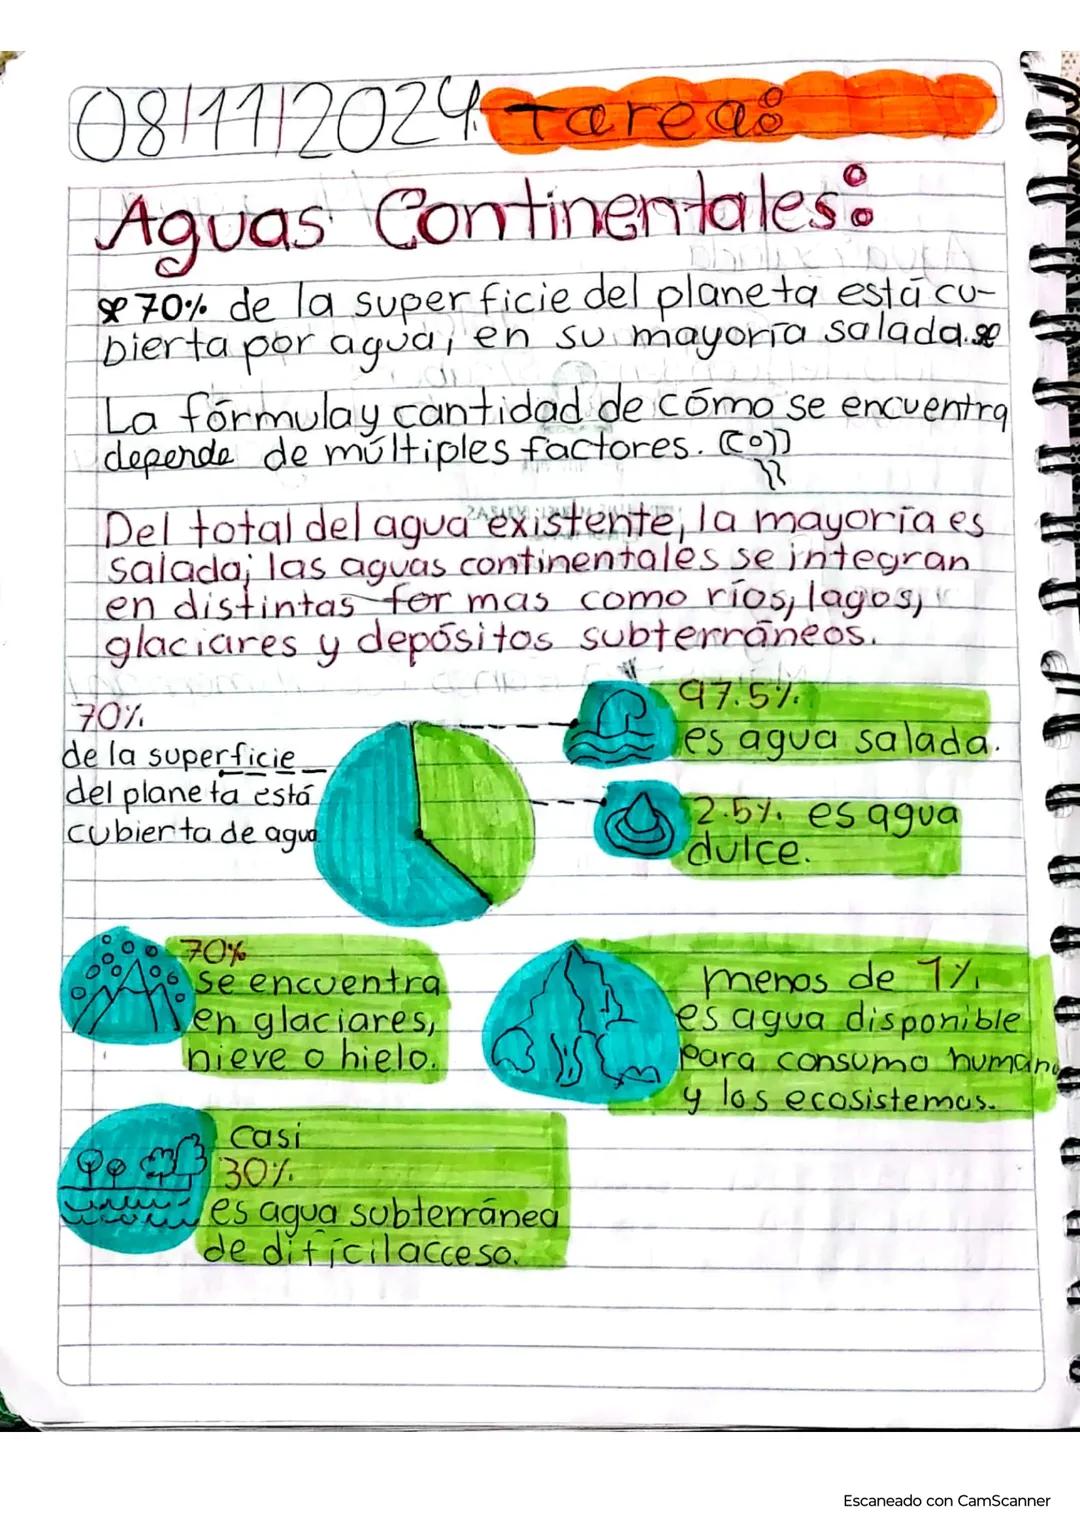 08/11/2024. Tarea:
Aguas Continentales:
70% de la superficie del planeta está cu-
bierta por agua, en su mayoría salada.
La fórmula y cantidad de cómo se encuentra
depende de múltiples factores.
Del total del agua existente, la mayoría es
salada; las aguas continentales se integran
en distintas formas como ríos, lagos,
glaciares y depósitos subterráneos.
70%
de la superficie
del planeta está
cubierta de agua
97.5%
es agua salada.
2.5% es agua
dulce.
70%
se encuentra
en glaciares,
nieve o hielo.
menos de 1%
es agua disponible
para consumo humano
y los ecosistemas.
Casi
30%
es agua subterránea
de difícil acceso.
Escaneado con CamScanner